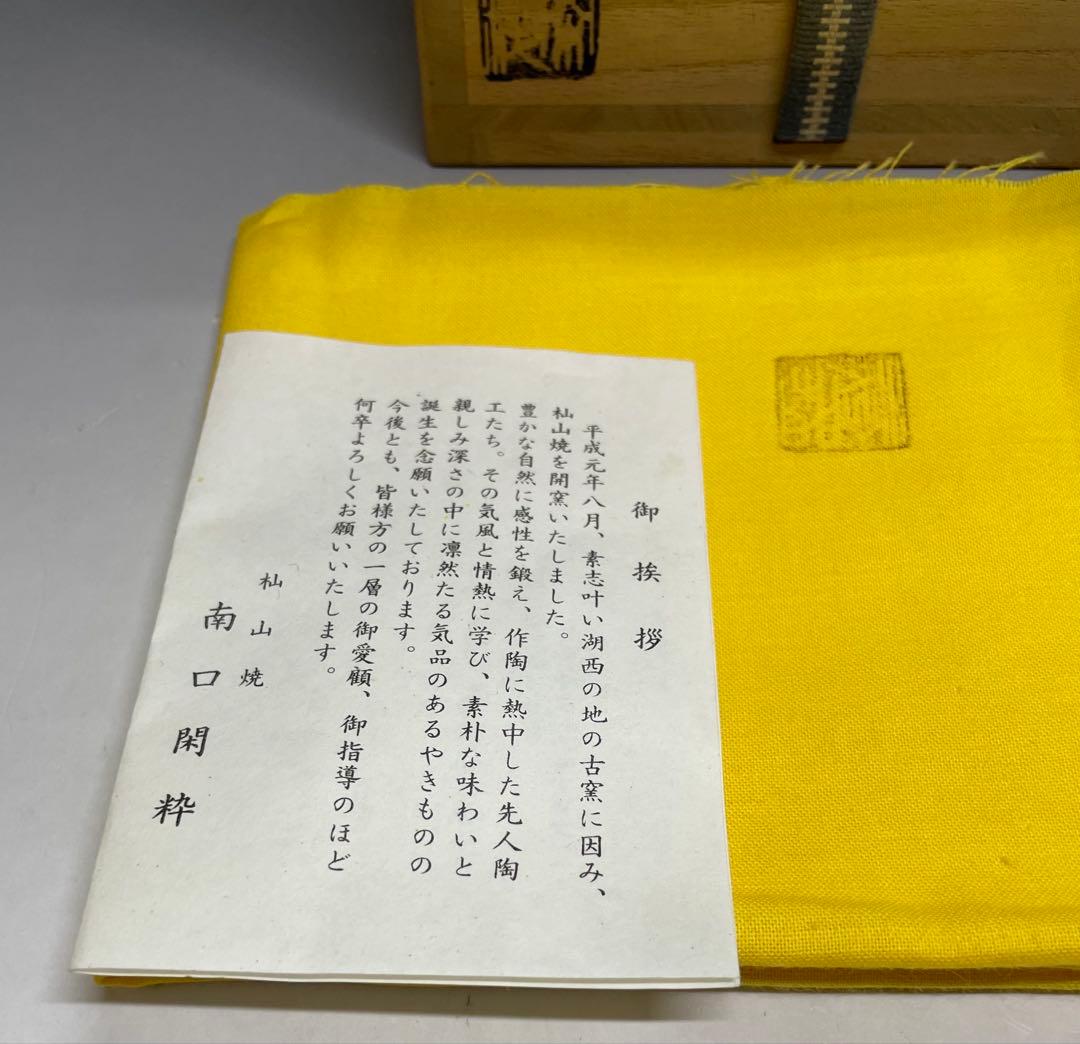 御挨拶
平成元年八月、素志叶い湖西の地の古窯に因み、
杣山焼を開窯いたしました。
豊かな自然に感性を鍛え、作陶に熱中した先人陶
工たち。その気風と情熱に学び、素朴な味わいと
親しみ深さの中に凛然たる気品のあるやきものの
誕生を念願いたしております。
今後とも、皆様方の一層の御愛顧、御指導のほど
何卒よろしくお願いいたします。
杣山焼
南口閑粋